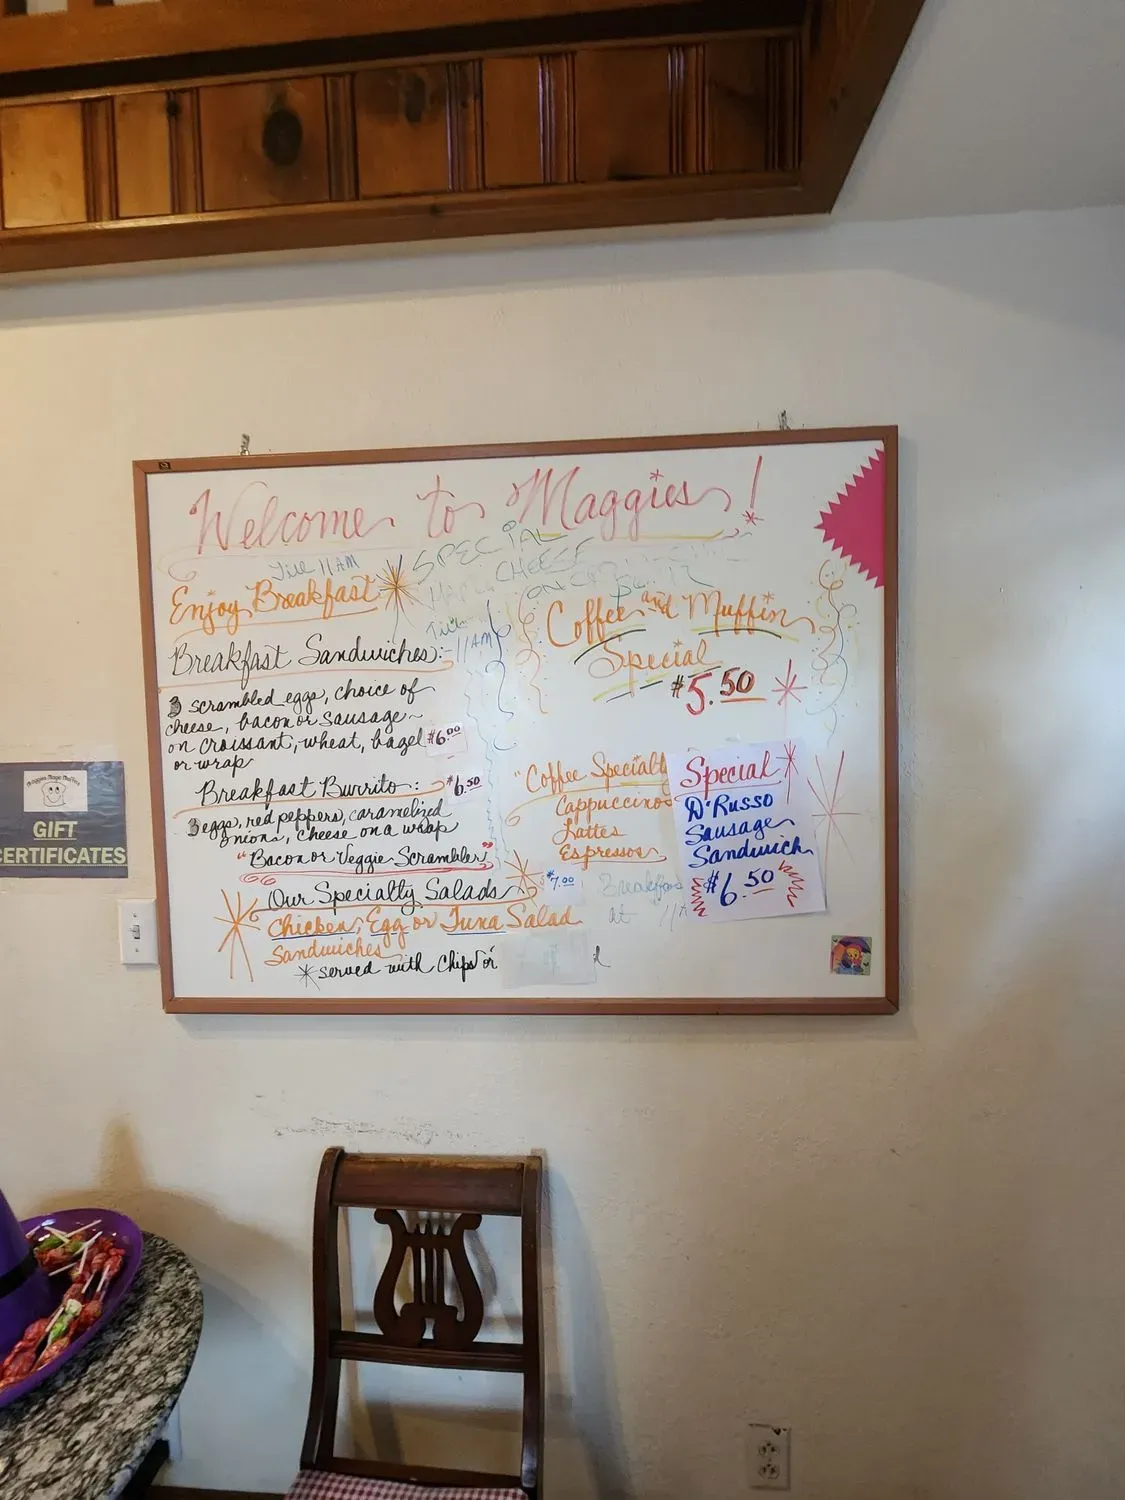 Welcome to Maggies!
Till 11AM
SPECIAL
CHEESE
Enjoy Breakfast
Till
11AM
Breakfast Sandwiches:
3 scrambled eggs, choice of
cheese, bacon or sausage
on croissant, wheat, bagel $6.00
or wrap
Breakfast Burrito: $6.50
3 eggs, red peppers, caramelized
onions, cheese on a wrap
"Bacon or Veggie Scrambler"
Our Specialty Salads $7.00
Chicken, Egg or Tuna Salad
Sandwiches
served with Chips or
Coffee and Muffin
Special
$5.50
"Coffee Specialty
Cappuccinos
Lattes
Espressos
Breakfast
at 11
Special
D'Russo
Sausage
Sandwich
$6.50
GIFT
CERTIFICATES